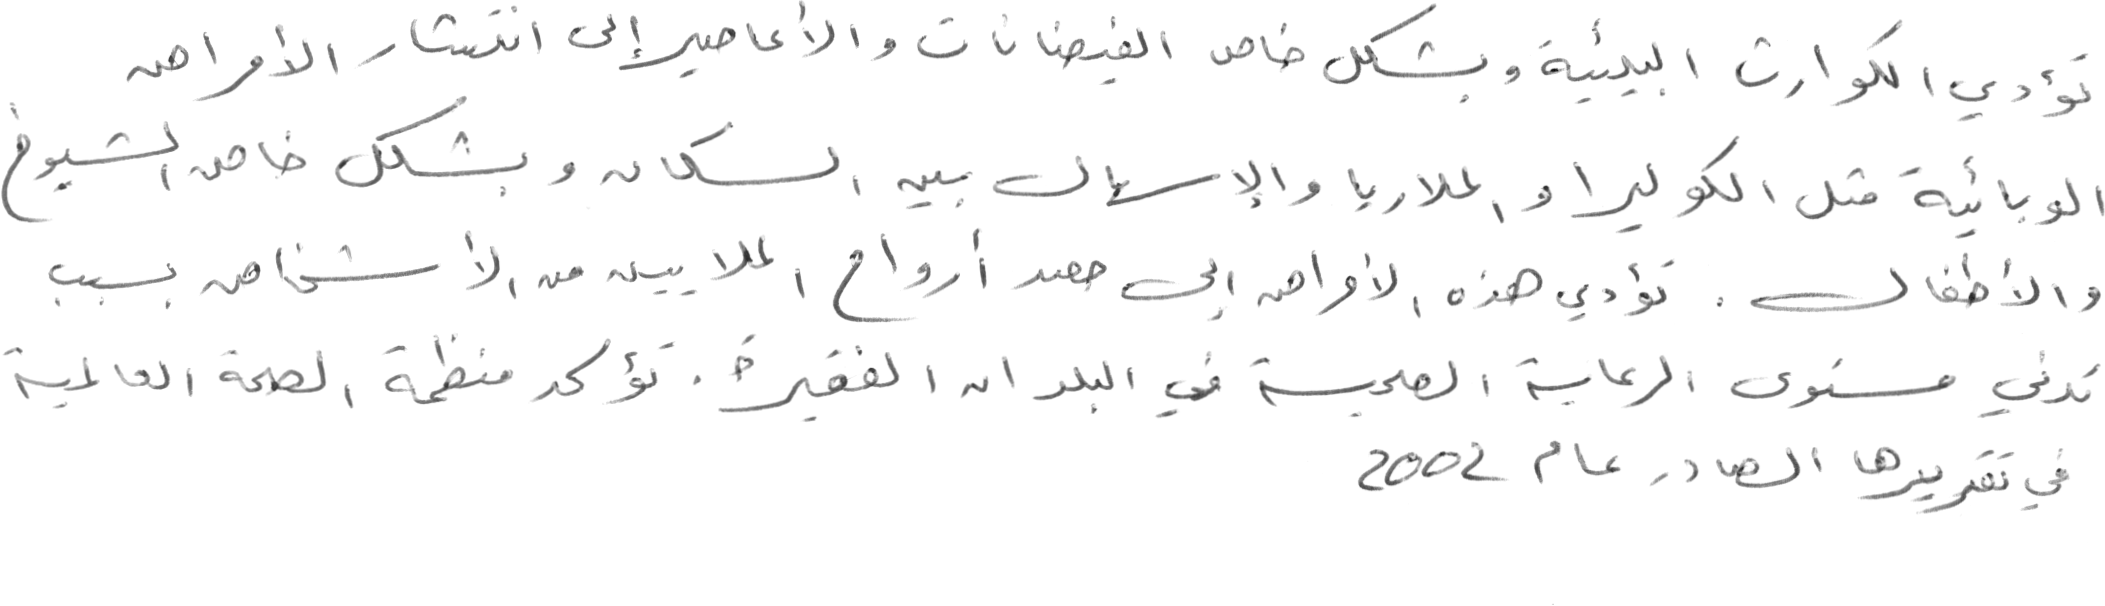 تؤدي الكوارث البيئية وبشكل خاص الفيضانات والأعاصير إلى انتشار الأمراض
الوبائية مثل الكوليرا والملاريا والإسهال بين السكان وبشكل خاص الشيوخ
والأطفال. تؤدي هذه الأمراض إلى حصد أرواح الملايين من الأشخاص بسبب
تدني مستوى الرعاية الصحية في البلدان الفقيرة. تؤكد منظمة الصحة العالمية
في تقريرها الصادر عام 2002